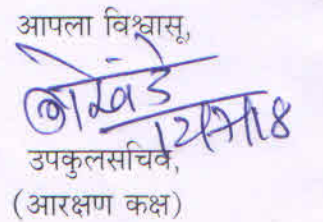 आपला विश्वासू,
उपकुलसचिव,
(आरक्षण कक्ष)